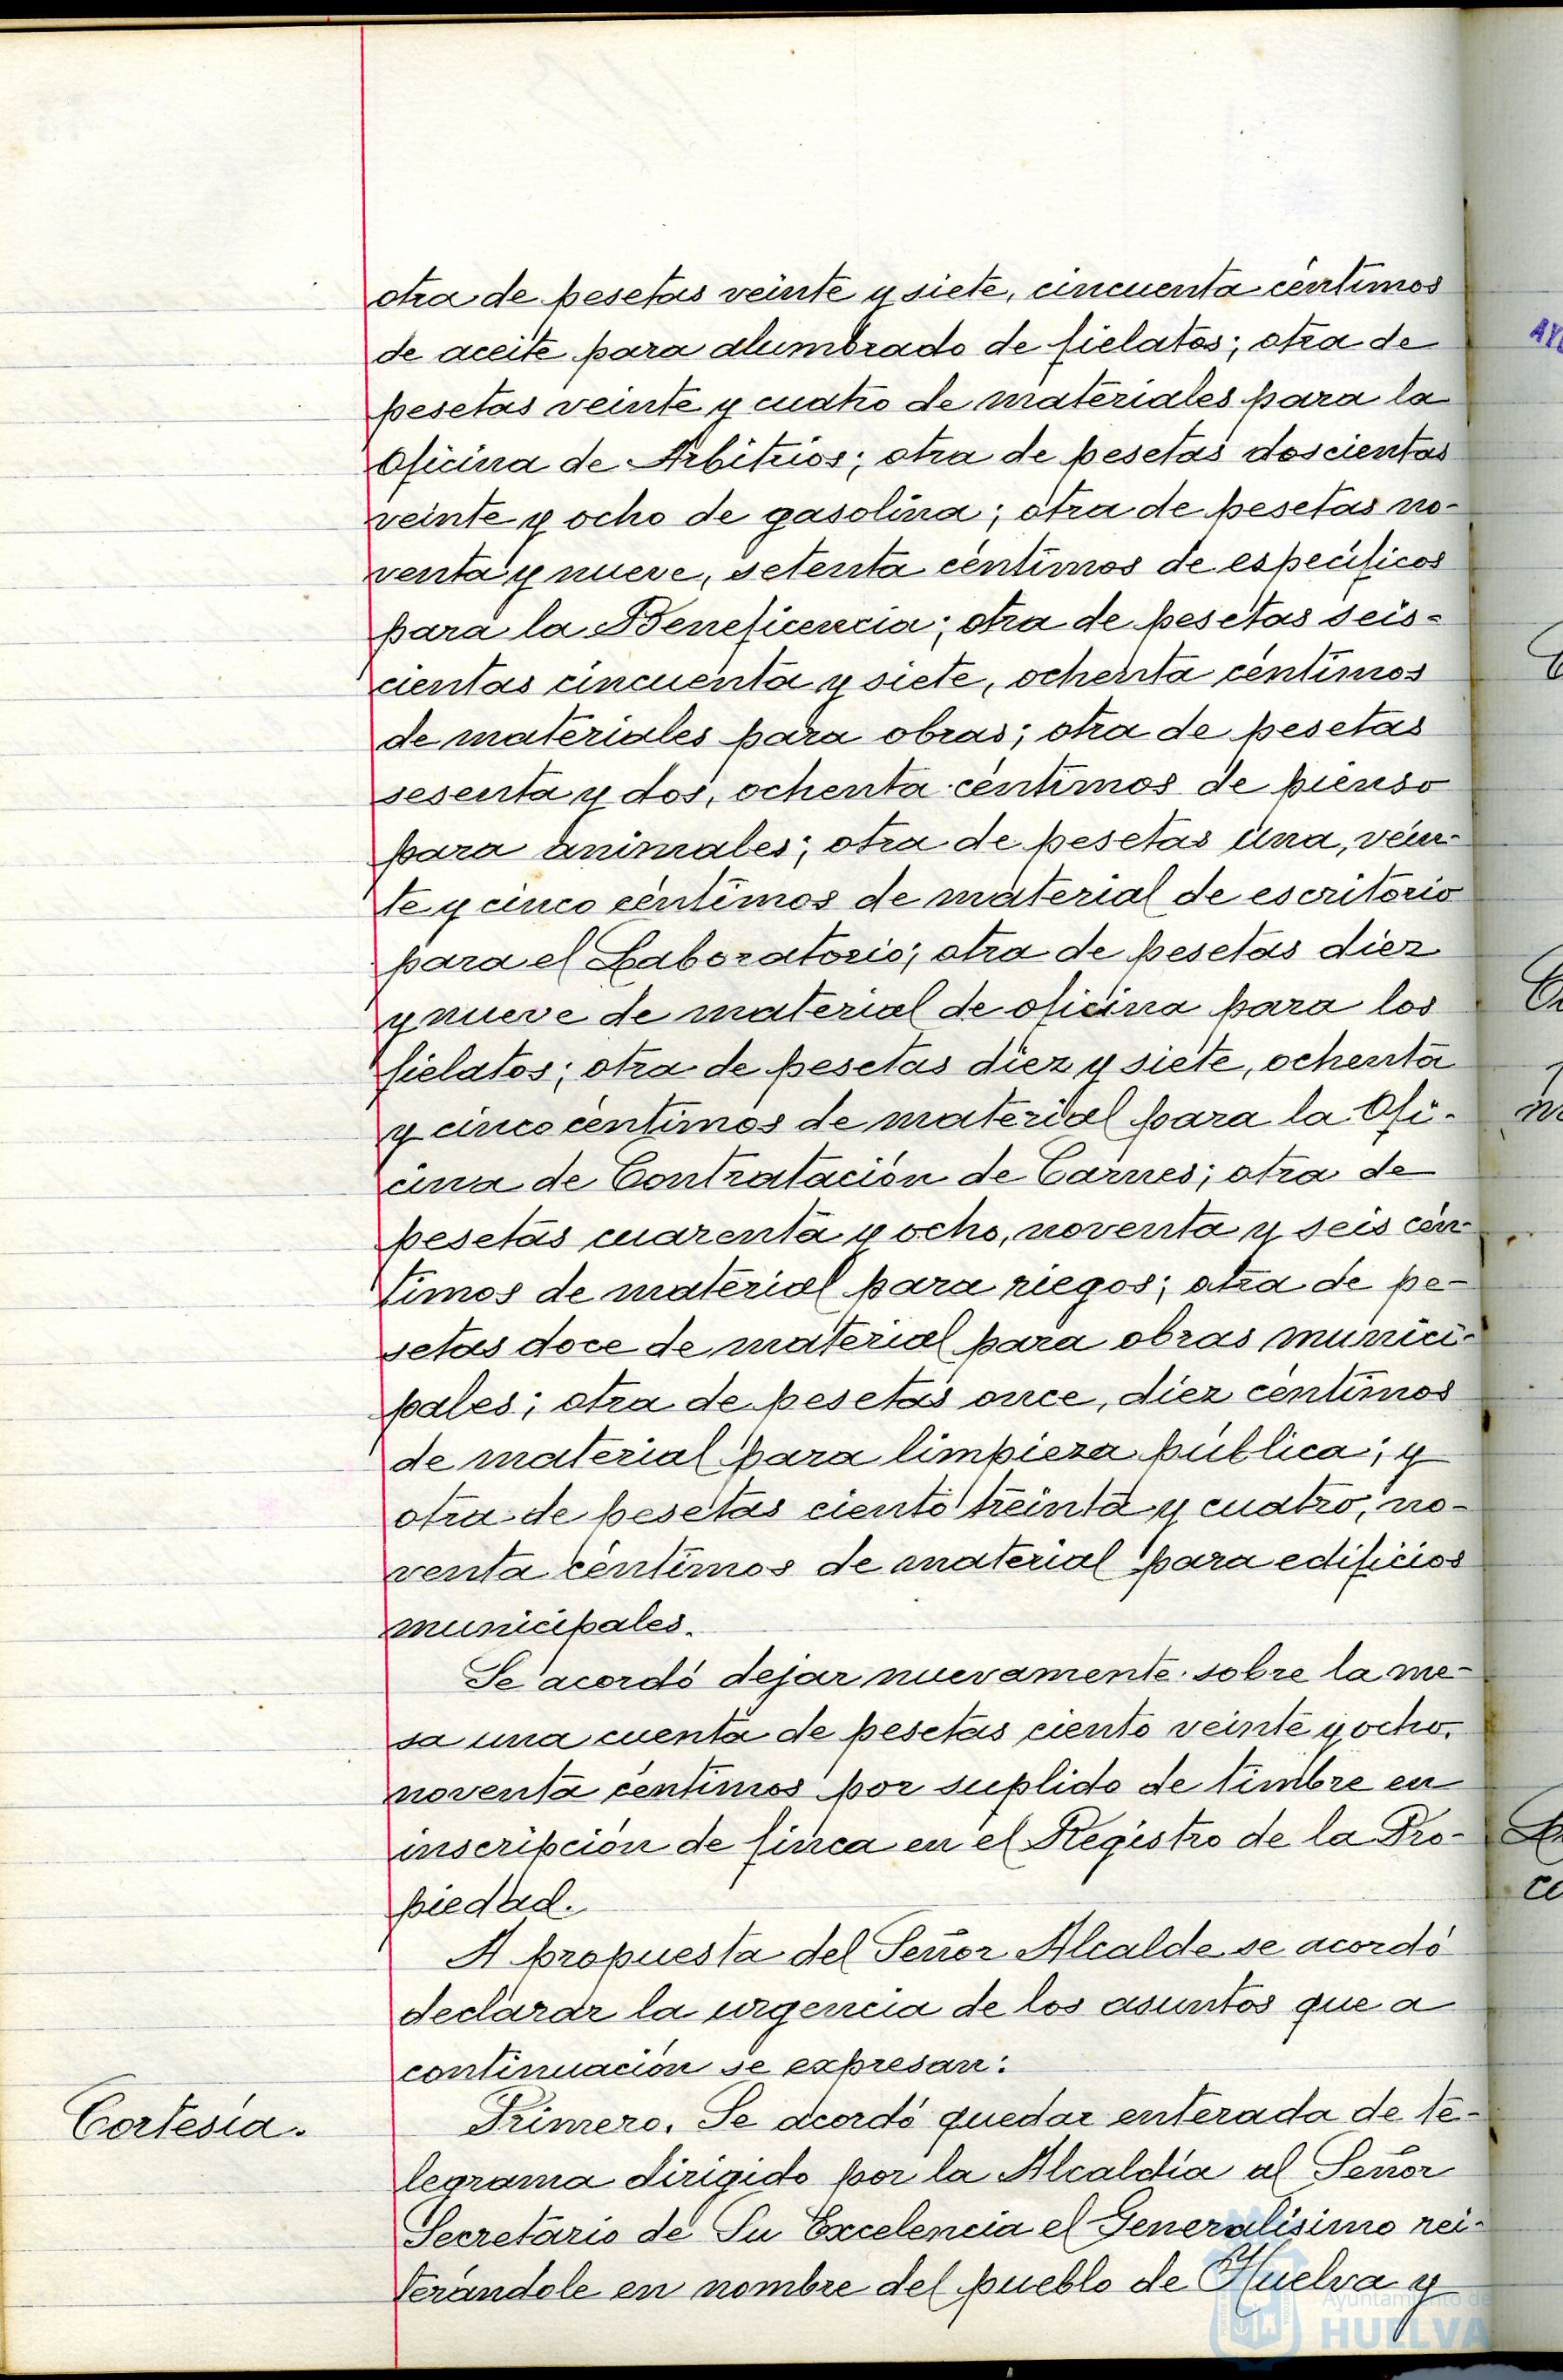 otra de pesetas veinte y siete, cincuenta céntimos
de aceite para alumbrado de fielatos; otra de
pesetas veinte y cuatro de materiales para la
Oficina de Arbitrios; otra de pesetas doscientas
veinte y ocho de gasolina; otra de pesetas no-
venta y nueve, setenta céntimos de específicos
para la Beneficencia; otra de pesetas seis-
cientas cincuenta y siete, ochenta céntimos
de materiales para obras; otra de pesetas
sesenta y dos, ochenta céntimos de pienso
para animales; otra de pesetas una, vein-
te y cinco céntimos de material de escritorio
para el Laboratorio; otra de pesetas diez
y nueve de material de oficina para los
fielatos; otra de pesetas diez y siete, ochenta
y cinco céntimos de material para la Ofi-
cina de Contratación de Carnes; otra de
pesetas cuarenta y ocho, noventa y seis cén-
timos de material para riegos; otra de pe-
setas doce de material para obras munici-
pales; otra de pesetas once, diez céntimos
de material para limpieza pública; y
otra de pesetas ciento treinta y cuatro, no-
venta céntimos de material para edificios
municipales.
Se acordó dejar nuevamente sobre la me-
sa una cuenta de pesetas ciento veinte y ocho,
noventa céntimos por suplido de timbre en
inscripción de finca en el Registro de la Pro-
piedad.
A propuesta del Señor Alcalde se acordó
declarar la urgencia de los asuntos que a
continuación se expresan:
Cortesía.
Primero. Se acordó quedar enterada de te-
legrama dirigido por la Alcaldía al Señor
Secretario de Su Excelencia el Generalísimo rei-
terándole en nombre del pueblo de Huelva y
Ayuntamiento de
HUELVA